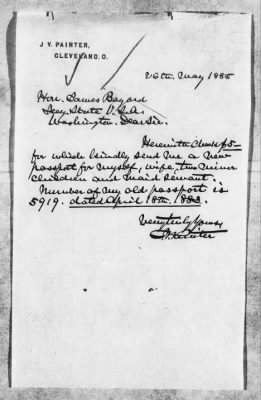 J. V. PAINTER,
CLEVELAND, O.
26th. May 1885
Hon. James Bayard
Secy State U.S.A.
Washington. Dear Sir.
Herewith Check $5-
for which kindly send me a new
passport for myself, wife, two minor
children and maid servant.
Number of my old passport is
5919. dated April 18th. 1883.
Very truly Yours
J.V. Painter